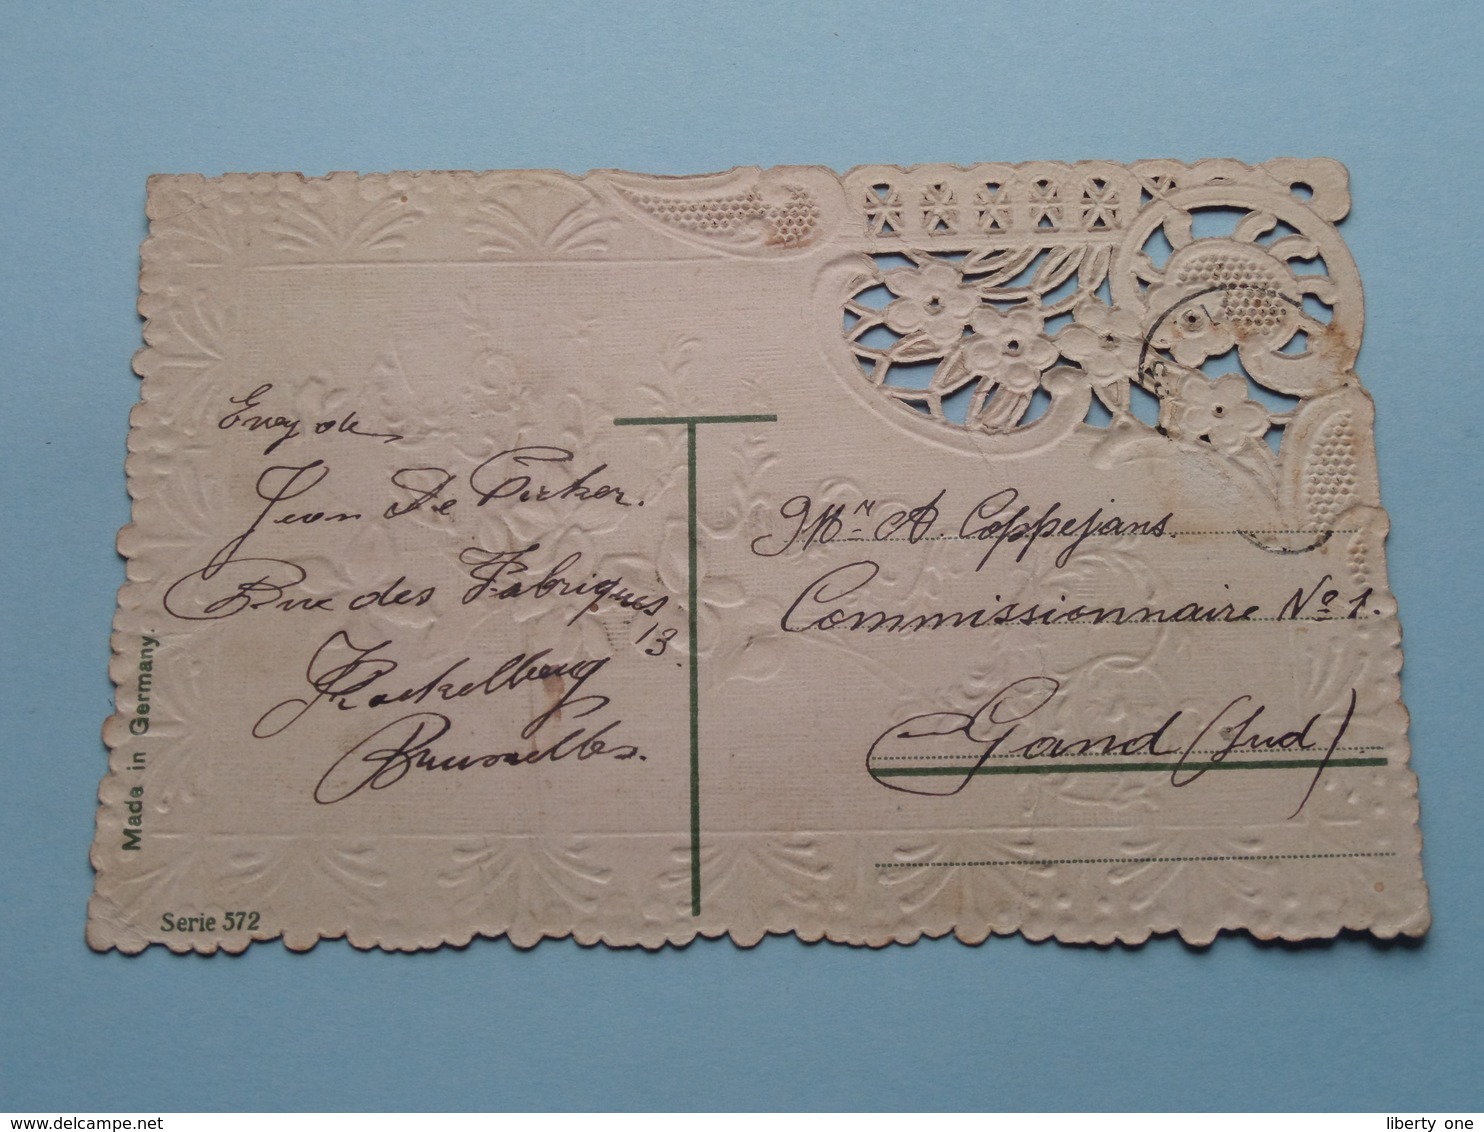 Envoy de
Jean De Picker.
Rue des Fabriques
13.
Koekelberg
Bruxelles.
Mr A. Coppejans.
Commissionnaire No 1.
Gand (Sud)
Made in Germany.
Serie 572
www.delcampe.net
liberty_one